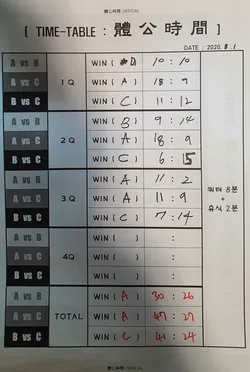 體公時間 OFFICIAL
[ TIME-TABLE : 體公時間 ]
DATE 2020. 8. 1
A vs B WIN ( D ) 10 : 10
A vs C 1Q WIN ( A ) 18 : 9
B vs C WIN ( C ) 11 : 12
A vs B WIN ( B ) 9 : 14
A vs C 2Q WIN ( A ) 18 : 9
B vs C WIN ( C ) 6 : 15
A vs B WIN ( A ) 11 : 2
A vs C 3Q WIN ( A ) 11 : 9
B vs C WIN ( C ) 7 : 14
쿼터 8분
+
휴식 2분
A vs B WIN ( ) :
A vs C 4Q WIN ( ) :
B vs C WIN ( ) :
A vs B WIN ( A ) 30 : 26
A vs C TOTAL WIN ( A ) 47 : 27
B vs C WIN ( C ) 41 : 24
體公時間 OFFICIAL